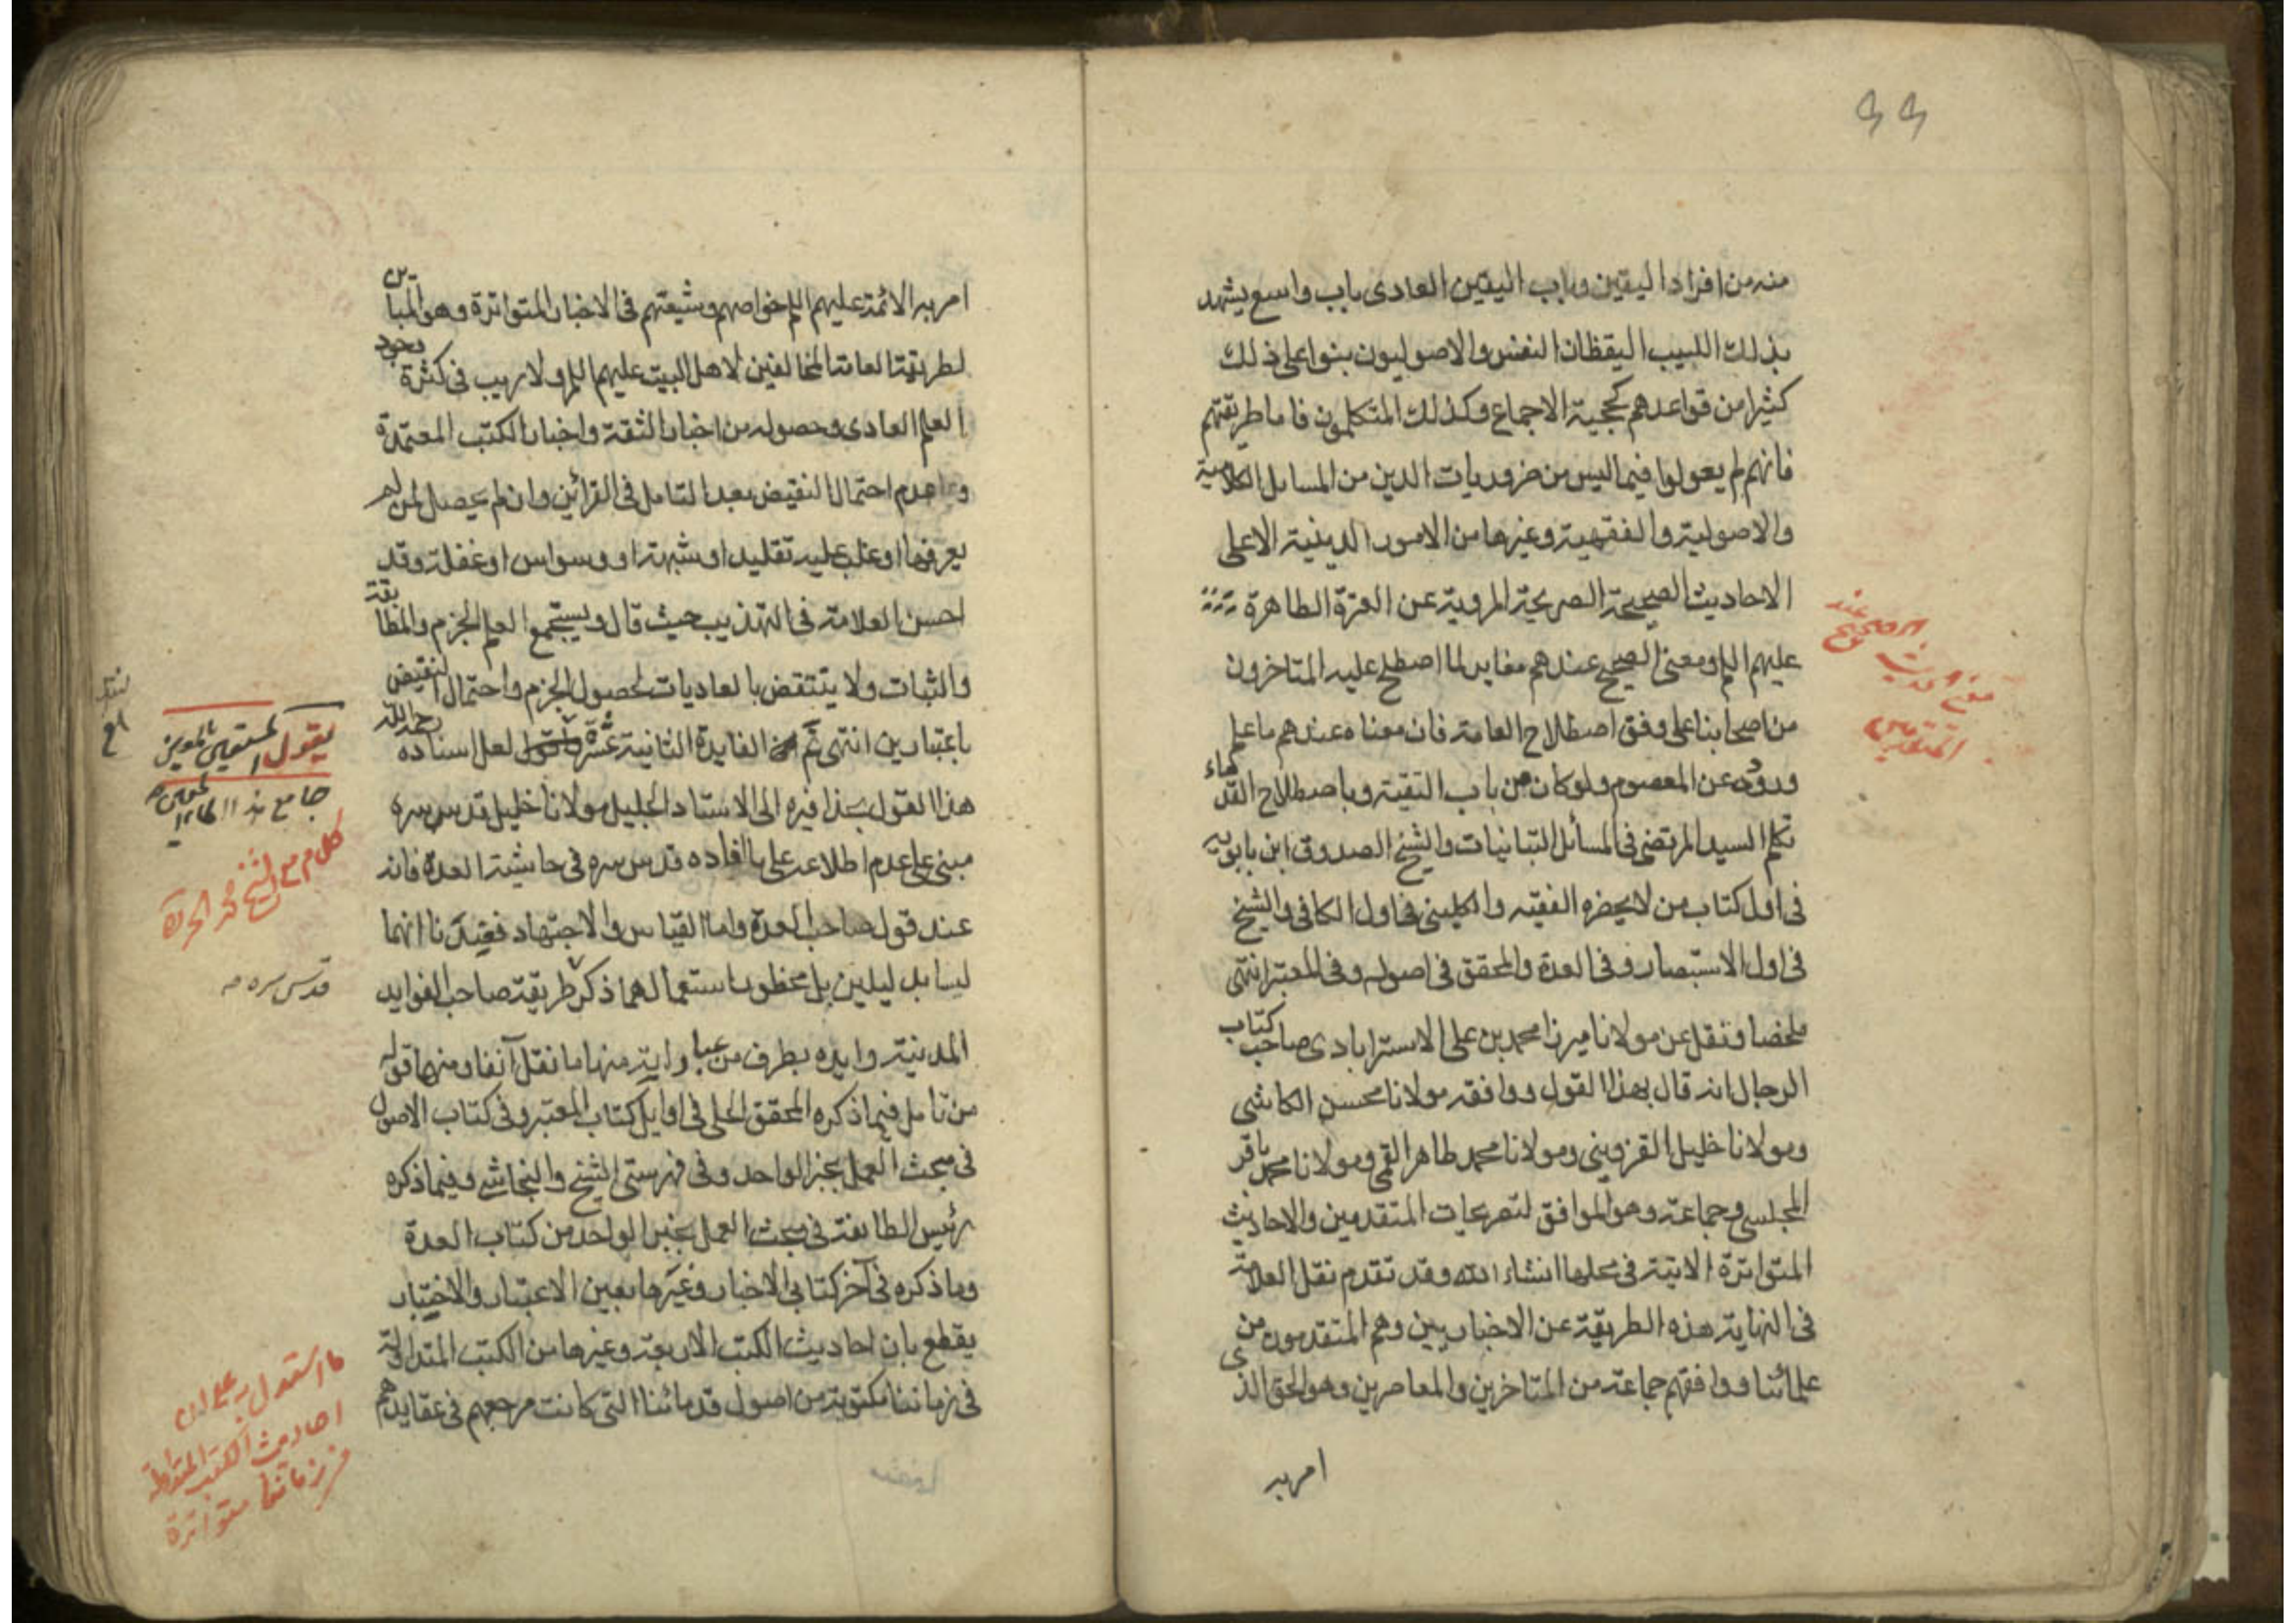 ٤٤
منه من افراد اليقين وباب اليقين العادى باب واسع يشهد
بذلك اللبيب اليقظان النفس والاصوليون بنوا على ذلك
كثيرا من قواعدهم كحجية الاجماع وكذلك المتكلمون فاما طريقتهم
فانهم لم يعولوا فيما ليس من ضروريات الدين من المسائل الكلامية
والاصولية والفقهية وغيرها من الامور الدينية الا على
الاحاديث الصحيحة الصريحة المروية عن العترة الطاهرة
عليهم السلم ومعنى الصحيح عندهم مغاير لما اصطلح عليه المتاخرون
من اصحابنا على وفق اصطلاح العامة فان معناه عندهم ما علم
وروده عن المعصوم ولو كان من باب التقية وباصطلاح القدماء
تكلم السيد المرتضى فى المسائل التبانيات والشيخ الصدوق ابن بابويه
فى اول كتاب من لا يحضره الفقيه والكلينى فى اول الكافى والشيخ
فى اول الاستبصار وفى العدة والمحقق فى اصوله وفى المعتبر انتهى
ملخصا ونقل عن مولانا ميرزا محمد بن على الاسترابادى صاحب كتاب
الرجال انه قال بهذا القول ووافقه مولانا محسن الكاشى
ومولانا خليل القزوينى ومولانا محمد طاهر القمى ومولانا محمد باقر
المجلسى وجماعة وهو الموافق لتصريحات المتقدمين والاحاديث
المتواترة الاتية فى محلها انشاء الله وقد تقدم نقل العلامة
فى النهاية هذه الطريقة عن الاخباريين وهم المتقدمون من
علمائنا ووافقهم جماعة من المتاخرين والمعاصرين وهو الحق الذى
امر به
الصحيح عند
المتقدمين
امر به الائمة عليهم السلم خواصهم وشيعتهم فى الاخبار المتواترة وهو المباين
لطريقة العامة المخالفين لاهل البيت عليهم السلم ولا ريب فى كثرة وجود
العلم العادى وحصوله من اخبار الثقة واخبار الكتب المعتمدة
وعدم احتمال النقيض بعد التامل فى القرائن وان لم يحصل لمن لم
يعرفها او غلب عليه تقليد او شبهة او وسواس او غفلة وقد
احسن العلامة فى التهذيب حيث قال ويستجمع العلم الجزم والمطابقة
والثبات ولا ينتقض بالعاديات لحصول الجزم واحتمال النقيض
باعتبارين انتهى ثم الفايدة الثانية عشرة اقول لعل اسناده رحمه الله
هذا القول بحذافيره الى الاستاد الجليل مولانا خليل قدس سره
مبنى على عدم اطلاعه على ما افاده قدس سره فى حاشية العدة فانه
عند قول صاحب العدة واما القياس والاجتهاد فعندنا انهما
ليسا بدليلين بل محظور استعمالهما ذكر طريقة صاحب الفوايد
المدنية وايده بطرف من عباراته منها ما نقل آنفا ومنها قوله
من تامل فيما ذكره المحقق الحلى فى اوايل كتاب المعتبر وفى كتاب الاصول
فى مبحث العمل بخبر الواحد وفى فهرستى الشيخ والنجاشى وفيما ذكره
رئيس الطايفة فى مبحث العمل بخبر الواحد من كتاب العدة
وما ذكره فى آخر كتابى الاخبار وغيرها بعين الاعتبار والاختبار
يقطع بان احاديث الكتب الاربعة وغيرها من الكتب المتداولة
فى زماننا مكتوبة من اصول قدمائنا التى كانت مرجعهم فى عقايدهم
يقول المستعين بالمعين
جامع
كلام مع الشيخ محمد الحر
قدس سره
ما استدل به على ان
احاديث الكتب المتداولة
فى زماننا متواترة